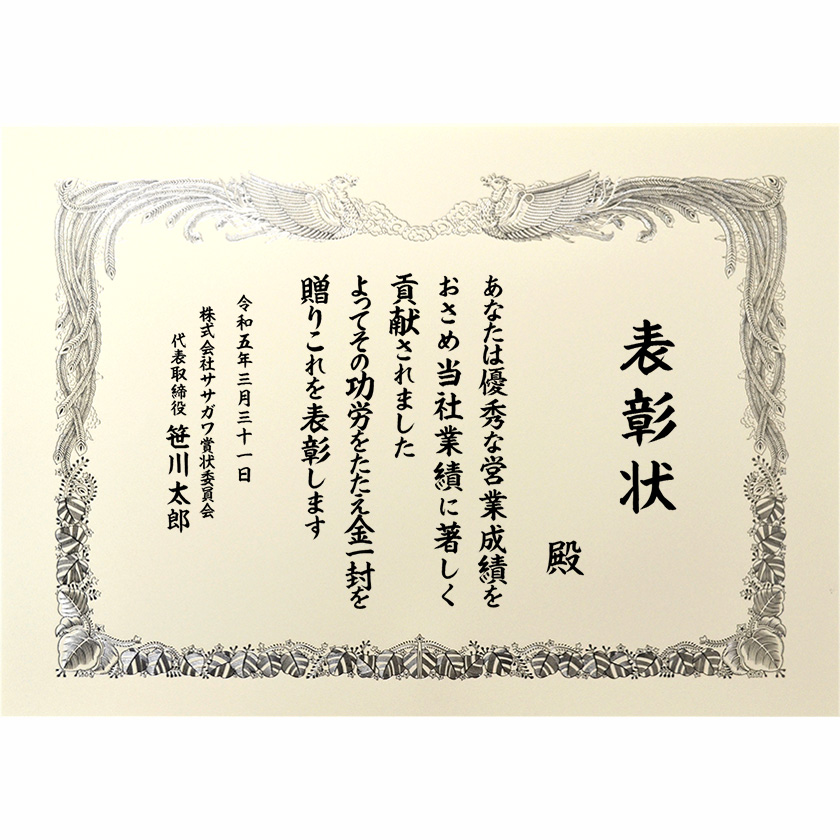 表彰状
殿
あなたは優秀な営業成績を
おさめ当社業績に著しく
貢献されました
よってその功労をたたえ金一封を
贈りこれを表彰します
令和五年三月三十一日
株式会社ササガワ賞状委員会
代表取締役 笹川太郎